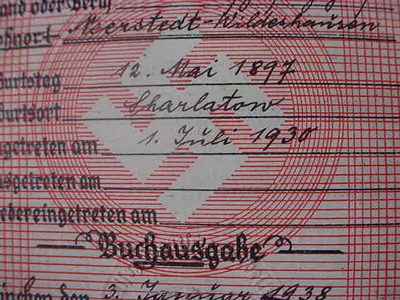 and oder Beruf
ohnort Neerstedt-Wildeshausen
burtstag 12. Mai 1897
burtsort Charlatow
ngetreten am 1. Juli 1930
usgetreten am
edereingetreten am
Buchausgabe
ünchen den 3. Januar 1938